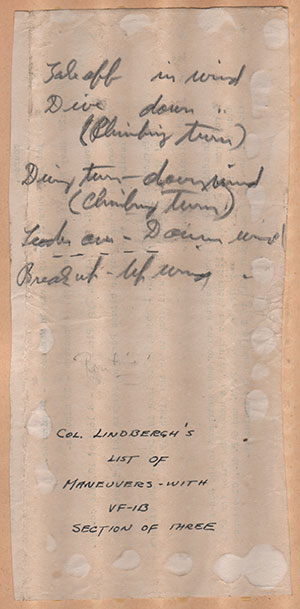 Take off in wind
Dive down "
(Climbing turn)
Diving turn - down wind
(Climbing turn)
over - Down wind
Break up - up wind
COL. LINDBERGH'S
LIST OF
MANEUVERS - WITH
VF-1B
SECTION OF THREE